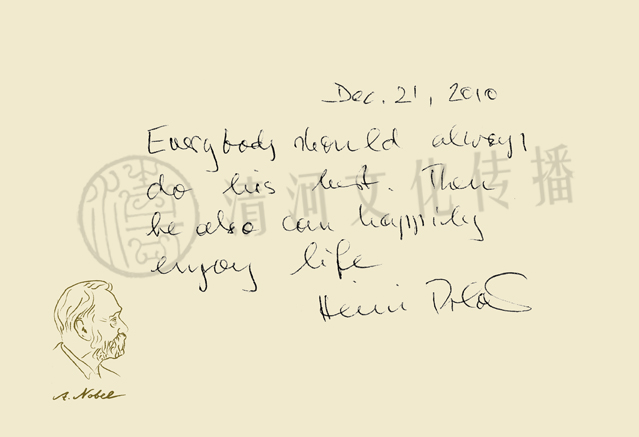 Dec. 21, 2010
Everybody should always
do his best. Then
he also can happily
enjoy life
清河文化传播
A. Nobel